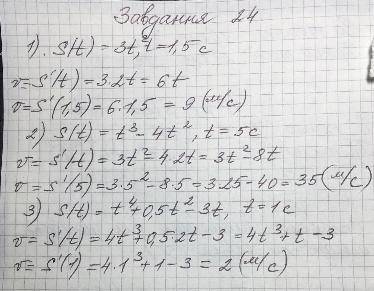 Завдання 24
1). S(t) = 3t², t = 1,5 c
v = S'(t) = 3·2t = 6t
v = S'(1,5) = 6·1,5 = 9 (м/с)
2) S(t) = t³ - 4t², t = 5c
v = S'(t) = 3t² - 4·2t = 3t² - 8t
v = S'(5) = 3·5² - 8·5 = 3·25 - 40 = 35 (м/с)
3) S(t) = t⁴ + 0,5t² - 3t, t = 1c
v = S'(t) = 4t³ + 0,5·2t - 3 = 4t³ + t - 3
v = S'(1) = 4·1³ + 1 - 3 = 2 (м/с)